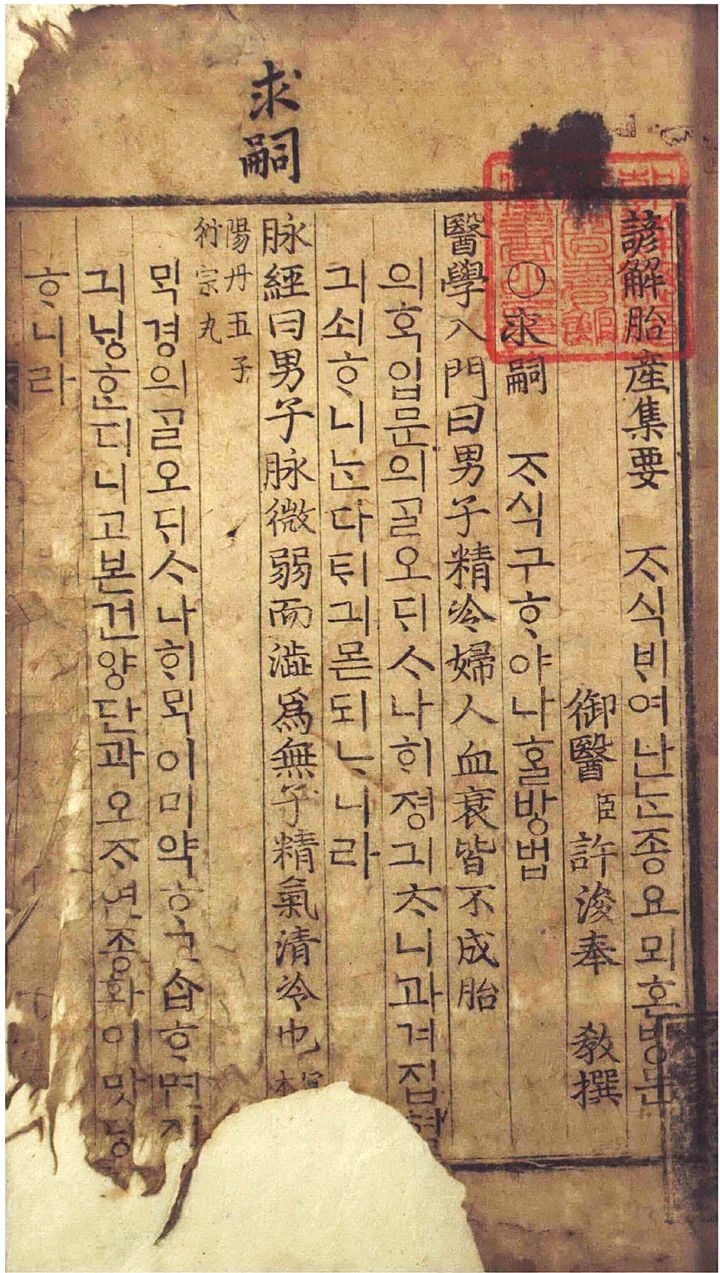 求嗣
諺解胎産集要 ᄌᆞ식ᄇᆡ여난ᄂᆞᆫ종요뫼혼방문
御醫 臣 許浚奉 敎撰
○求嗣 ᄌᆞ식구ᄒᆞ야나홀방법
醫學入門曰男子精冷婦人血衰皆不成胎
의ᄒᆞᆨ입문의ᄀᆞᆯ오ᄃᆡᄉᆞ나ᄒᆡ졍긔ᄎᆞ니과겨집혈
긔쇠ᄒᆞ니ᄂᆞᆫ다ᄐᆡ긔몯되ᄂᆞ니라
脉經曰男子脉微弱而澁爲無子精氣清冷也
陽丹五子
衍宗丸
ᄆᆡᆨ경의ᄀᆞᆯ오ᄃᆡᄉᆞ나ᄒᆡᄆᆡᆨ이미약ᄒᆞ고습ᄒᆞ면
긔닝ᄒᆞᆫ디니고본건양단과오ᄌᆞ연종환이맛당
ᄒᆞ니라